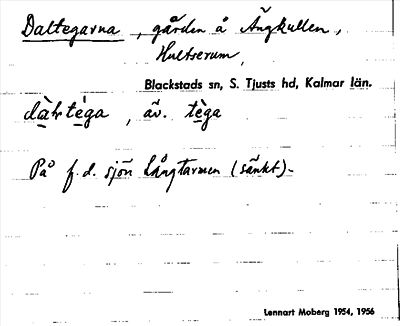 Daltegarna, gården å Ängkullen,
Hultserum,
Blackstads sn, S. Tjusts hd, Kalmar län.
dàltèga, äv. tèga
På f.d. sjön Långtarmen (sänkt).
Lennart Moberg 1954, 1956